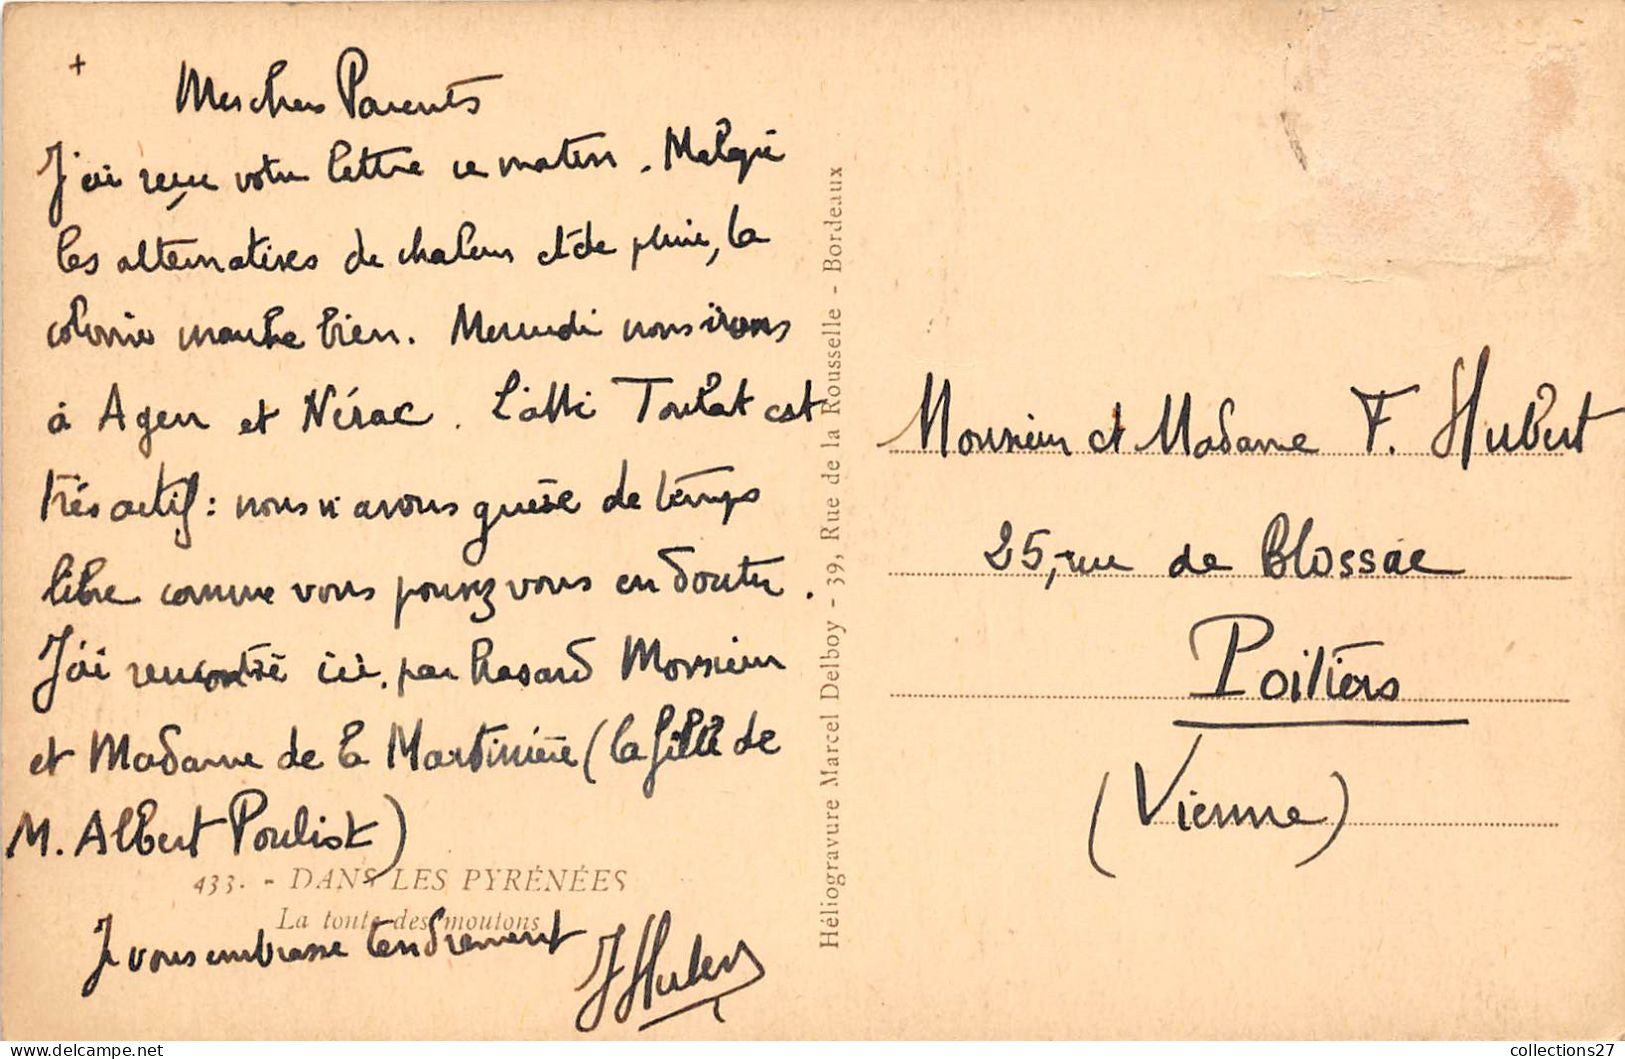 +
Mes chers Parents
J'ai reçu votre lettre ce matin. Malgré
les alternatives de chaleur et de pluie, la
colonie marche bien. Mercredi nous irons
à Agen et Nérac. L'abbé Toulat est
très actif : nous n'avons guère de temps
libre comme vous pouvez vous en douter.
J'ai rencontré ici, par hasard Monsieur
et Madame de la Martinière (la fille de
M. Albert Pouliot)
433. - DANS LES PYRÉNÉES
La tonte des moutons
Je vous embrasse tendrement
J Hubert
Héliogravure Marcel Delboy - 39, Rue de la Rousselle - Bordeaux
Monsieur et Madame F. Hubert
25, rue de Blossac
Poitiers
(Vienne)
collections27